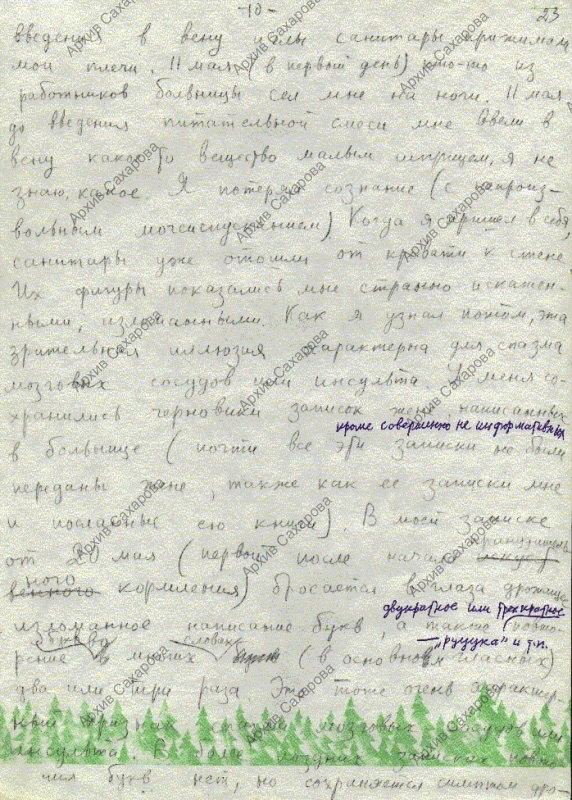 -10-
23
введения в вену иглы санитары прижимали
мои плечи. 11 мая (в первый день) кто-то из
работников больницы сел мне на ноги. 11 мая
до введения питательной смеси мне ввели в
вену какое-то вещество малым шприцем, я не
знаю, какое. Я потерял сознание (с непроиз-
вольным мочеиспусканием) Когда я пришел в себя,
санитары уже отошли от кровати к стене
Их фигуры показались мне странно искажен-
ными, изломанными. Как я узнал потом, эта
зрительная иллюзия характерна для спазма
мозговых сосудов или инсульта. У меня со-
хранились черновики записок жене, написанных
кроме совершенно не информативных
в больнице (почти все эти записки не были
переданы жене, также как ее записки мне
и посланные ею книги). В моей записке
от 20 мая (первой после начала искусст
принудитель
ного
венного кормления) бросается в глаза дрожащее
двукратное или трехкратное
изломанное написание букв, а также повто-
— „рууука" и т.п.
буквы словах
рение в многих (в основном гласных)
два или три раза Это тоже очень характер-
ный признак спазма мозговых сосудов или
инсульта. В более поздних записках повто-
букв нет, но сохраняется симптом дро-